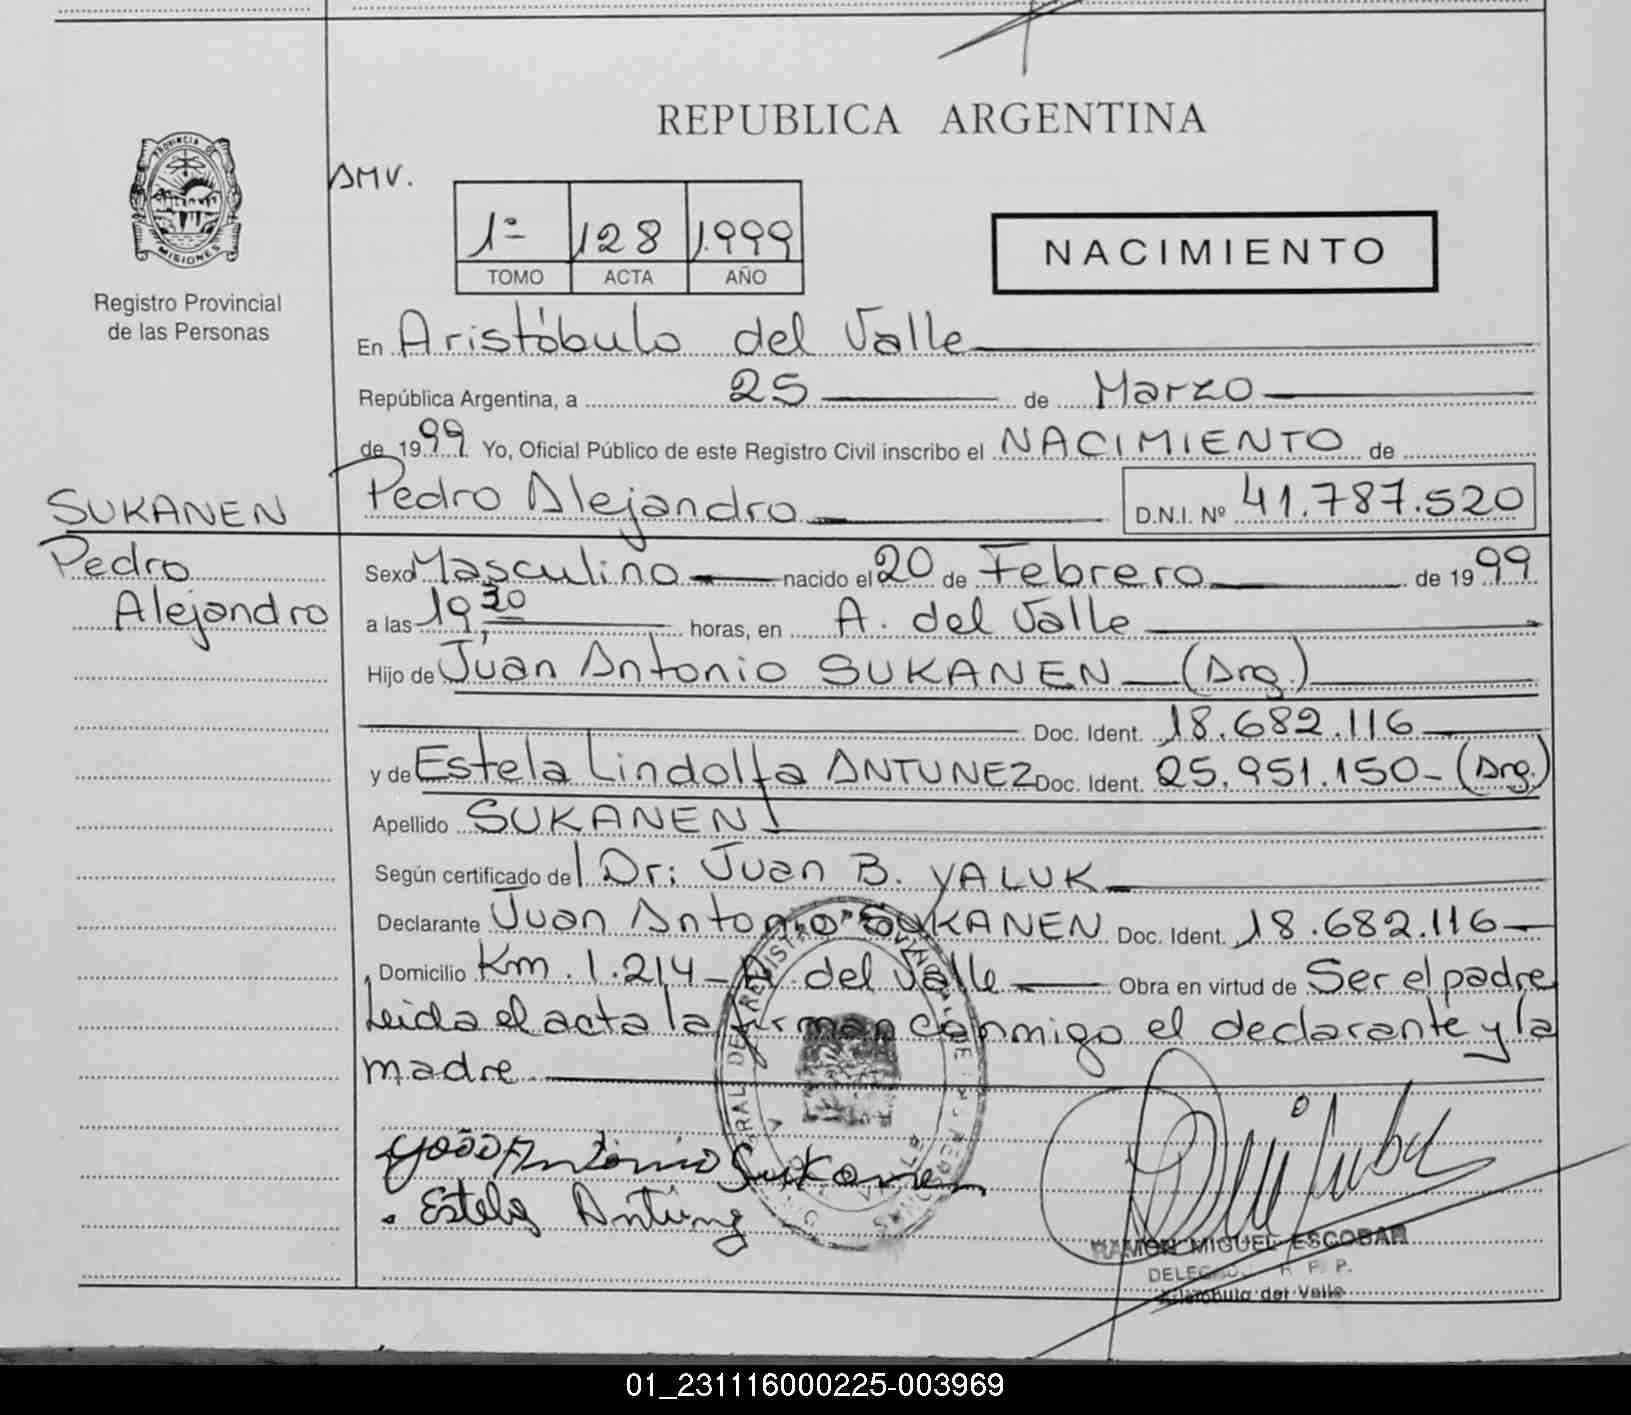 REPUBLICA ARGENTINA
PROVINCIA DE
MISIONES
Registro Provincial
de las Personas
AMV.
1º 128 1.999
TOMO ACTA AÑO
NACIMIENTO
En Aristóbulo del Valle
República Argentina, a 25 de Marzo
de 1999 Yo, Oficial Público de este Registro Civil inscribo el NACIMIENTO de
SUKANEN Pedro Alejandro D.N.I. Nº 41.787.520
Pedro Sexo Masculino nacido el 20 de Febrero de 1999
Alejandro a las 19,30 horas, en A. del Valle
Hijo de Juan Antonio SUKANEN (Arg.)
Doc. Ident. 18.682.116
y de Estela Lindolfa ANTUNEZ Doc. Ident. 25.951.150- (Arg.)
Apellido SUKANEN
Según certificado del Dr: Juan B. YALUK
Declarante Juan Antonio SUKANEN Doc. Ident. 18.682.116
Domicilio Km. 1.214 - A. del Valle Obra en virtud de Ser el padre
Leida el acta la firman conmigo el declarante y la
madre
Antonio Sukanen
Estela Antunez
RAMON MIGUEL ESCOBAR
R. P. P.
Aristobulo del Valle
01_231116000225-003969